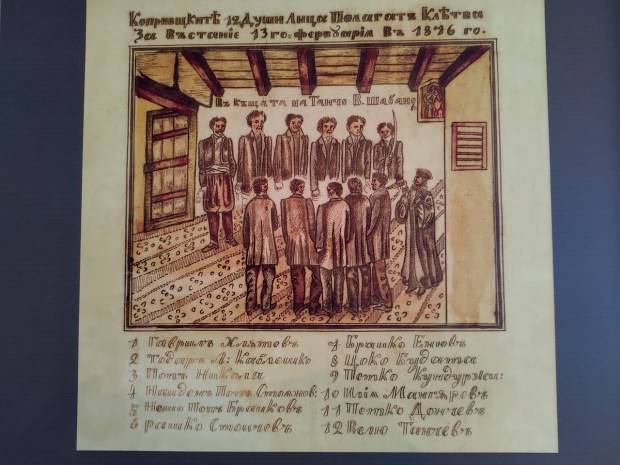 Копривщките 12 Души Лица Полагатъ Клѣтва
За Въстаніе 13го= феруарія Въ 1876 го.
Въ къщата на Танчо В. Шабанѫ
1 Гаврилъ Хлятовъ
2 Тодаръ Л:
3 Попъ Никола
4 Найденъ Попъ Стоянов:
5 Нешо Попъ Брайковъ
6 Рашко Стойчовъ
7 Брайко Еньовъ
8 Цоко Будата
9 Петко Кундуржи:
10 Илія Мангъровъ
11 Петко Дончевъ
12 Велю Танчевъ